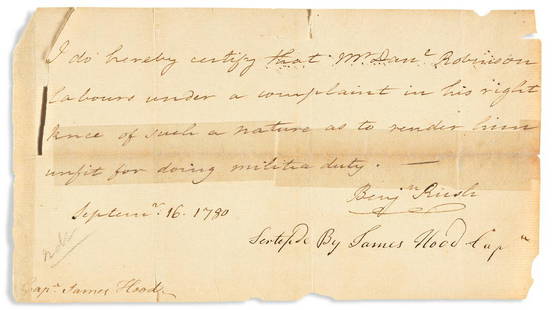 I do hereby certify that Mr Danl Robinson
labours under a complaint in his right
knee of such a nature as to render him
unfit for doing militia duty. —
Benjn Rush
Septemr 16. 1780
By James Hood Capn
Capn James Hood